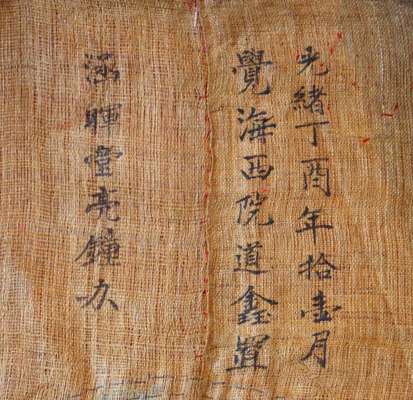 光緒丁酉年拾壹月
覺海西院道鑫置
涵暉堂亮鐘办